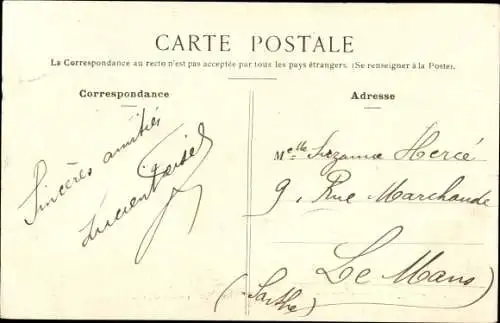 CARTE POSTALE
La Correspondance au recto n'est pas acceptée par tous les pays étrangers. (Se renseigner à la Poste).
Correspondance
Sincères amitiés
Lucien
Adresse
Melle Suzanne Hercé
9, Rue Marchande
Le Mans
(Sarthe)